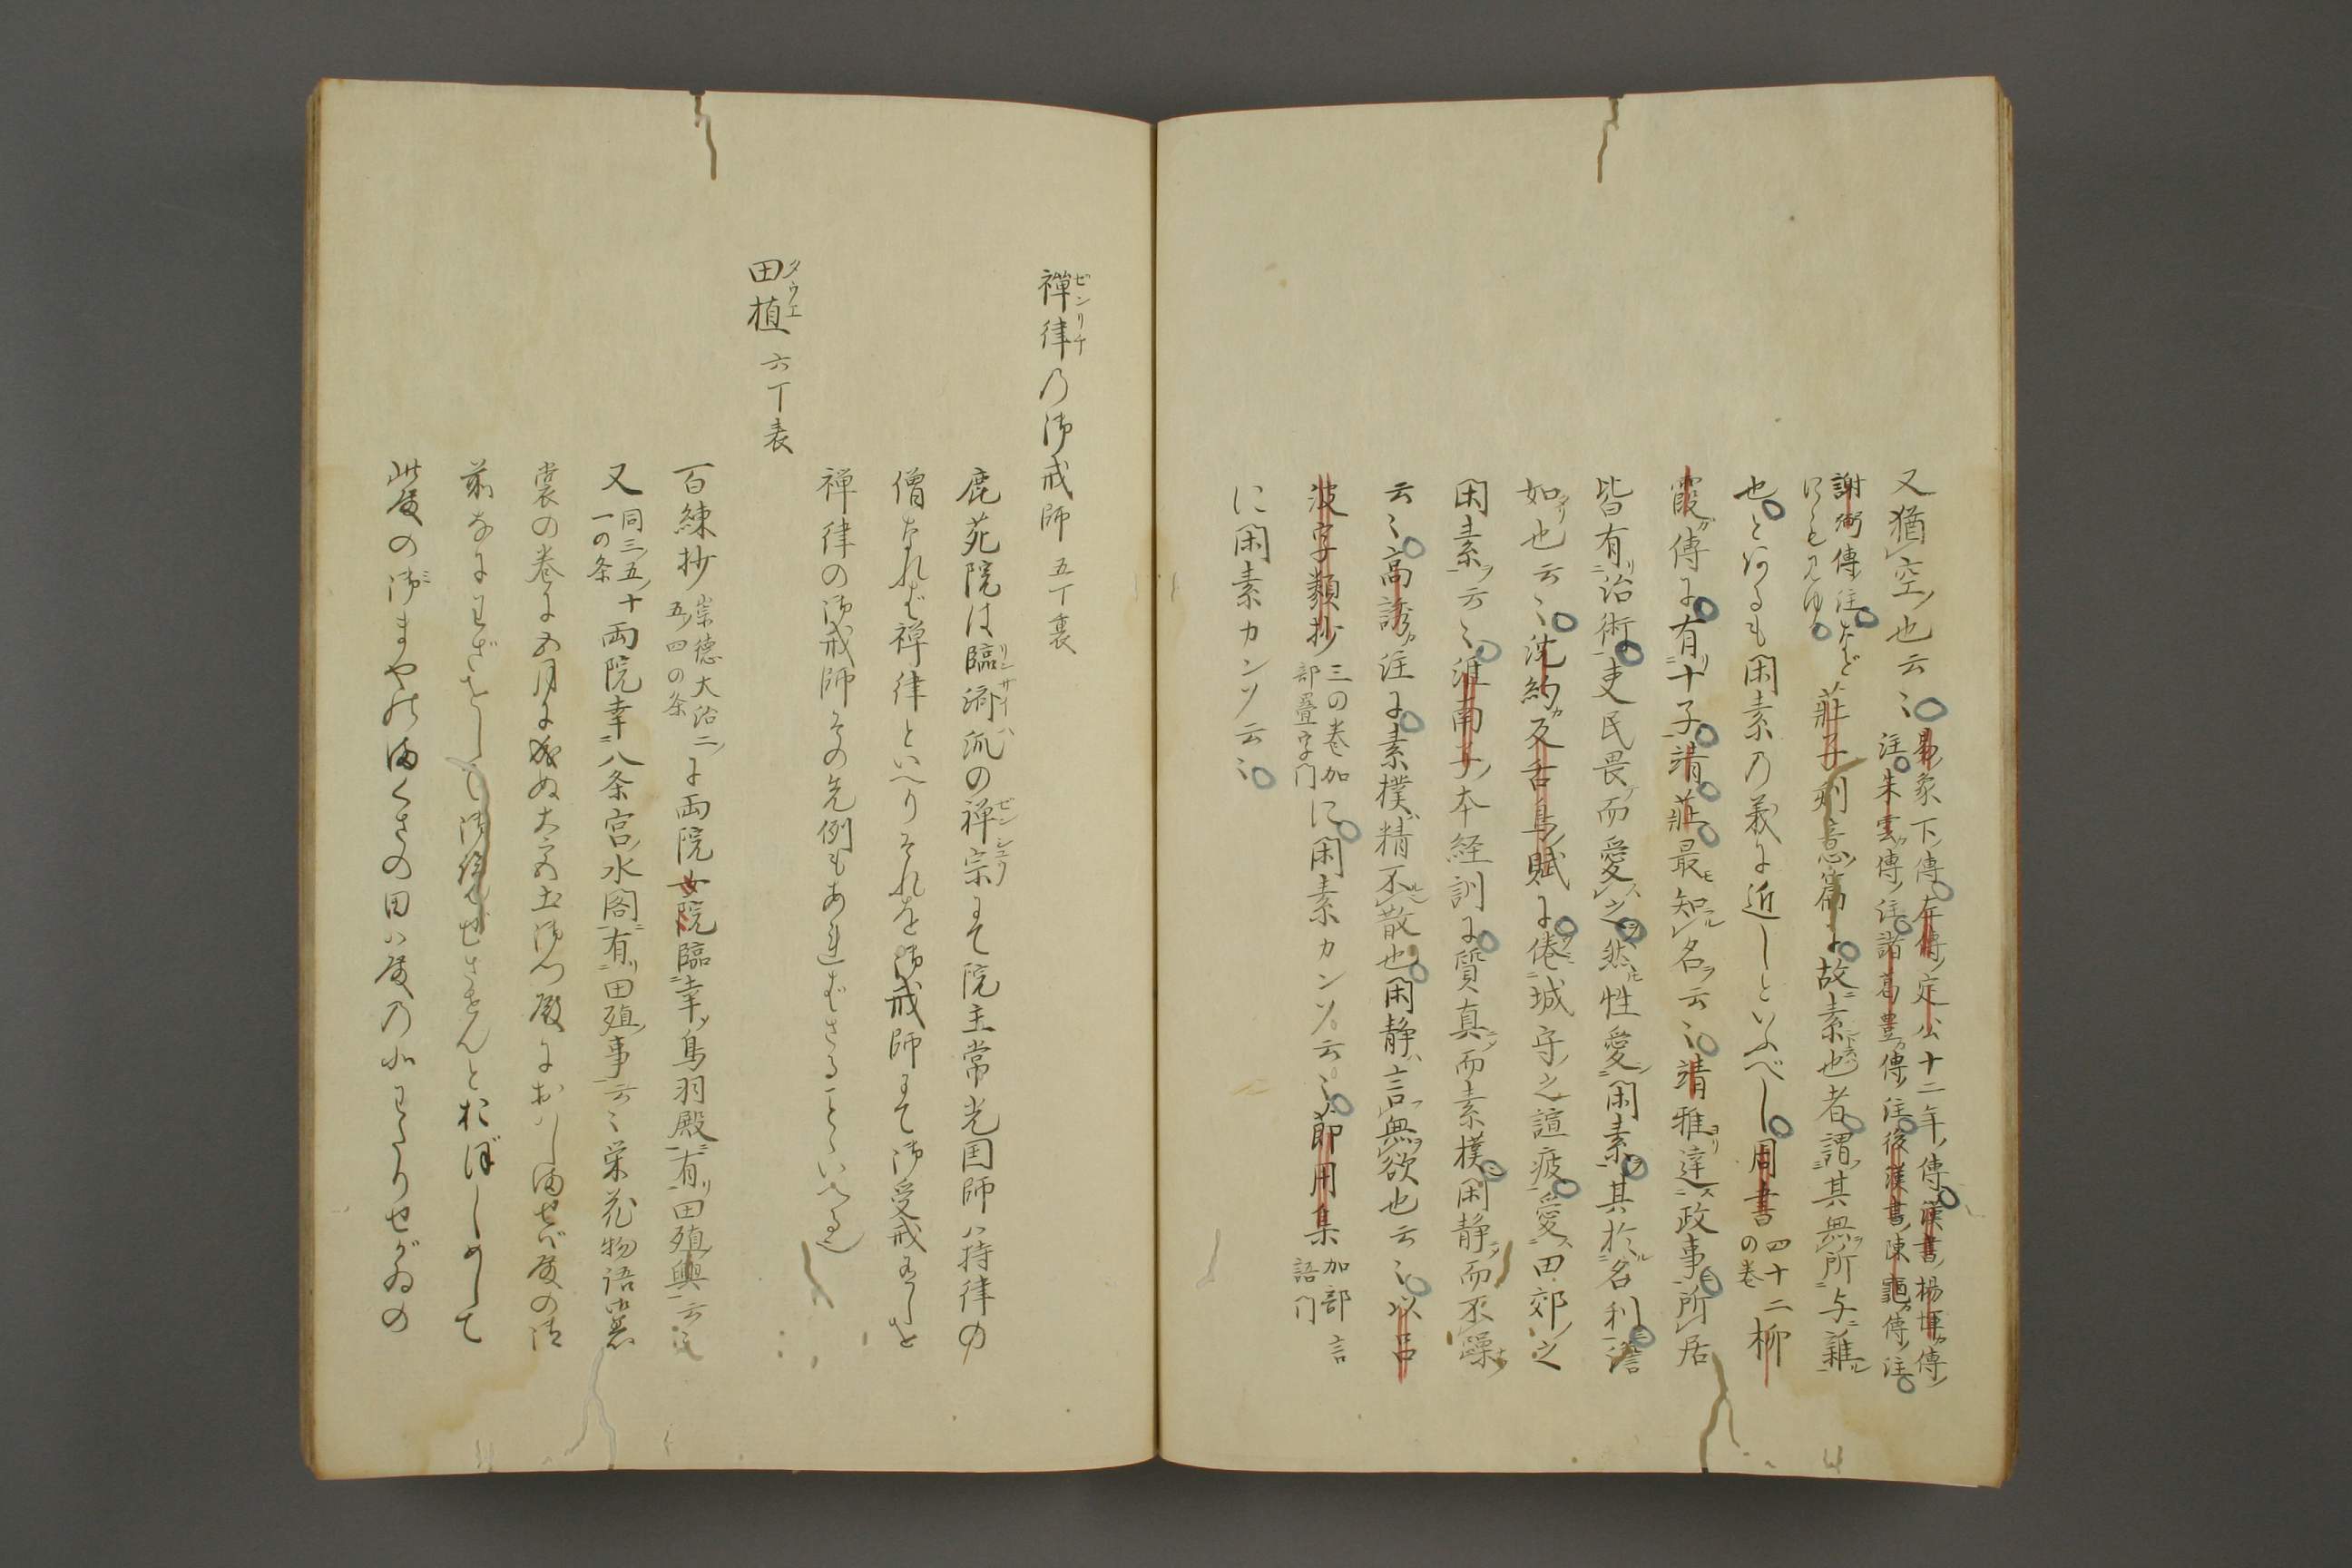 又猶空也云〻易彖下傳左傳定公十二年傳漢書楊惲傳
注朱雲傳注諸葛豊傳注後漢書陳龜傳注
謝弼傳注など
にもみゆ
莊子刻意篇に故素也者謂其無所与雜
也とあるも閑素の義に近しといふべし周書四十二の巻柳
霞傳に有十子靖莊最知名云〻靖雅達政事所居
皆有治術吏民畏而愛之然性愛閑素其於名利澹
如也云〻沈約反舌鳥賦に倦城守之諠疲愛田郊之
閑素云〻淮南子本経訓に質真而素樸閑静而不躁
云〻高誘注に素樸精不散也閑静言無欲也云〻以呂
波字類抄三の巻加部疊字门に閑素カンソ云〻節用集加部言語门
に閑素カンソ云〻
禪律の御戒師 五丁裏
鹿苑院は臨済派の禅宗にて院主常光国師ハ持律の
僧なれば禅律といへりそれを御戒師にて御受戒ありしを
禅律の御戒師その先例もあればさることゝいへる也
田植 六丁表
百練抄崇徳大治二ノ五ノ四の条に両院女院臨幸鳥羽殿有田殖興云〻
又同三ノ五ノ十一の条両院幸八条宮水閣有田殖事云〻栄花物語御裳
裳の巻に五月に成ぬ大宮の土御门殿におハしませバ殿の御
前なにわざをして御覧ぜさせんとおぼしめして
此殿の御まやの田ハ殿の北わたりせがゐの